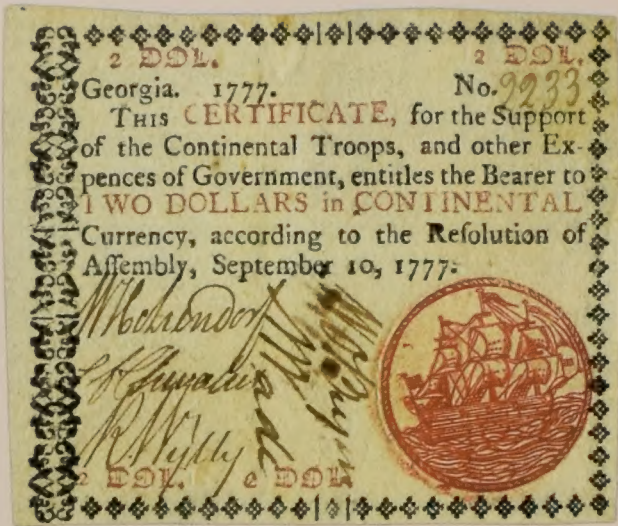 2 DOL. 2 DOL.
Georgia. 1777. No. 9233
THIS CERTIFICATE, for the Support
of the Continental Troops, and other Ex-
pences of Government, entitles the Bearer to
TWO DOLLARS in CONTINENTAL
Currency, according to the Reſolution of
Aſſembly, September 10, 1777.
R. Wylly
2 DOL. 2 DOL.